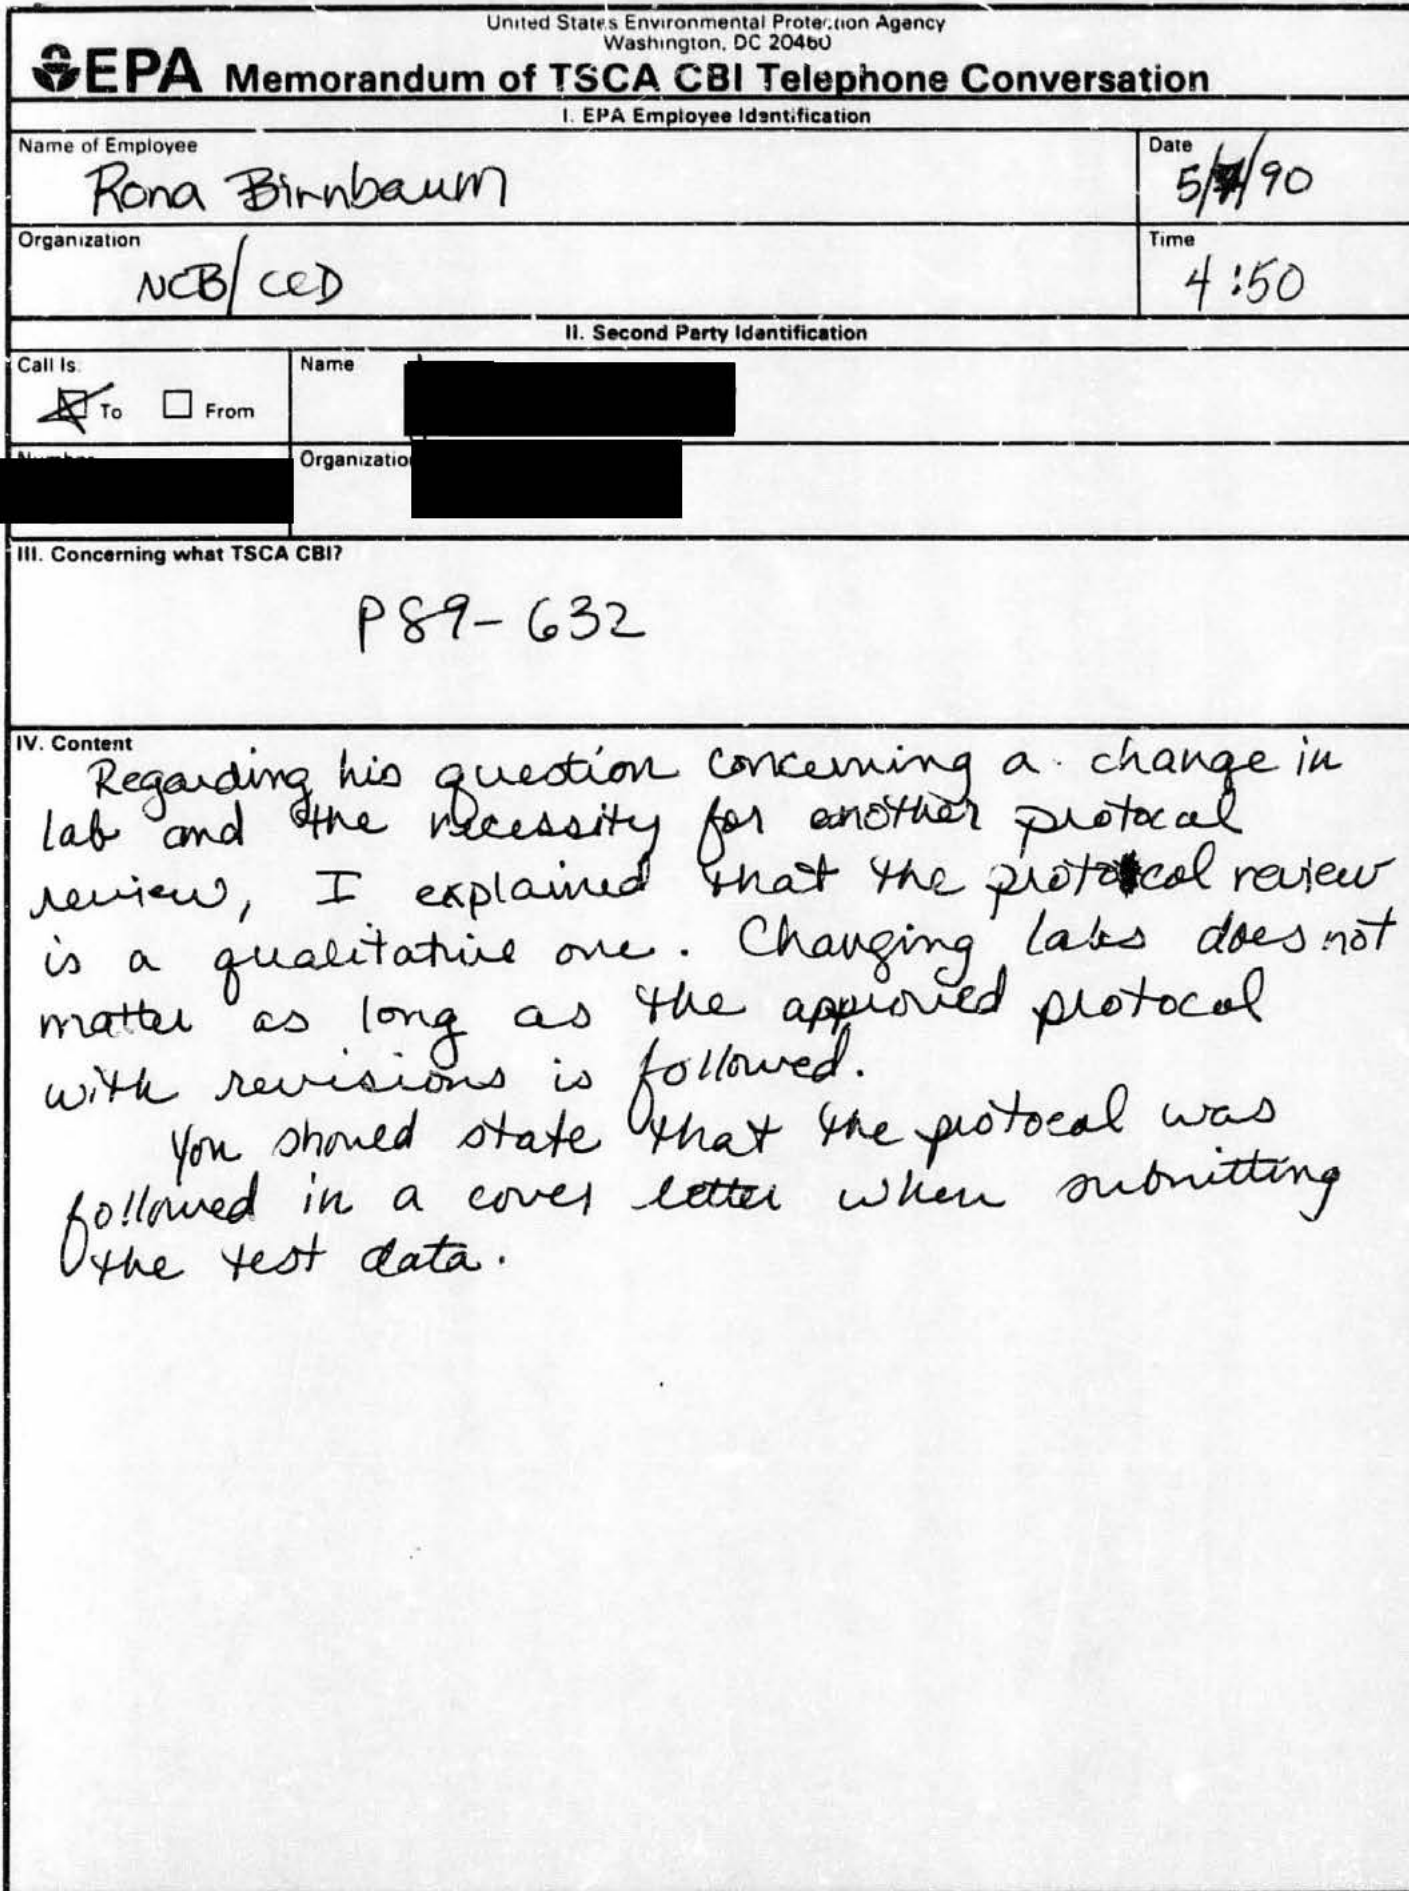 United States Environmental Protection Agency
Washington, DC 20460
EPA Memorandum of TSCA CBI Telephone Conversation
I. EPA Employee Identification
Name of Employee
Rona Birnbaum
Date
5/ /90
Organization
NCB/CCD
Time
4:50
II. Second Party Identification
Call Is:
To From
Name
Number
Organization
III. Concerning what TSCA CBI?
P89-632
IV. Content
Regarding his question concerning a change in
lab and the necessity for another protocal
review, I explained that the protocol review
is a qualitative one. Changing labs does not
matter as long as the approved protocol
with revisions is followed.
You should state that the protocol was
followed in a cover letter when submitting
the test data.